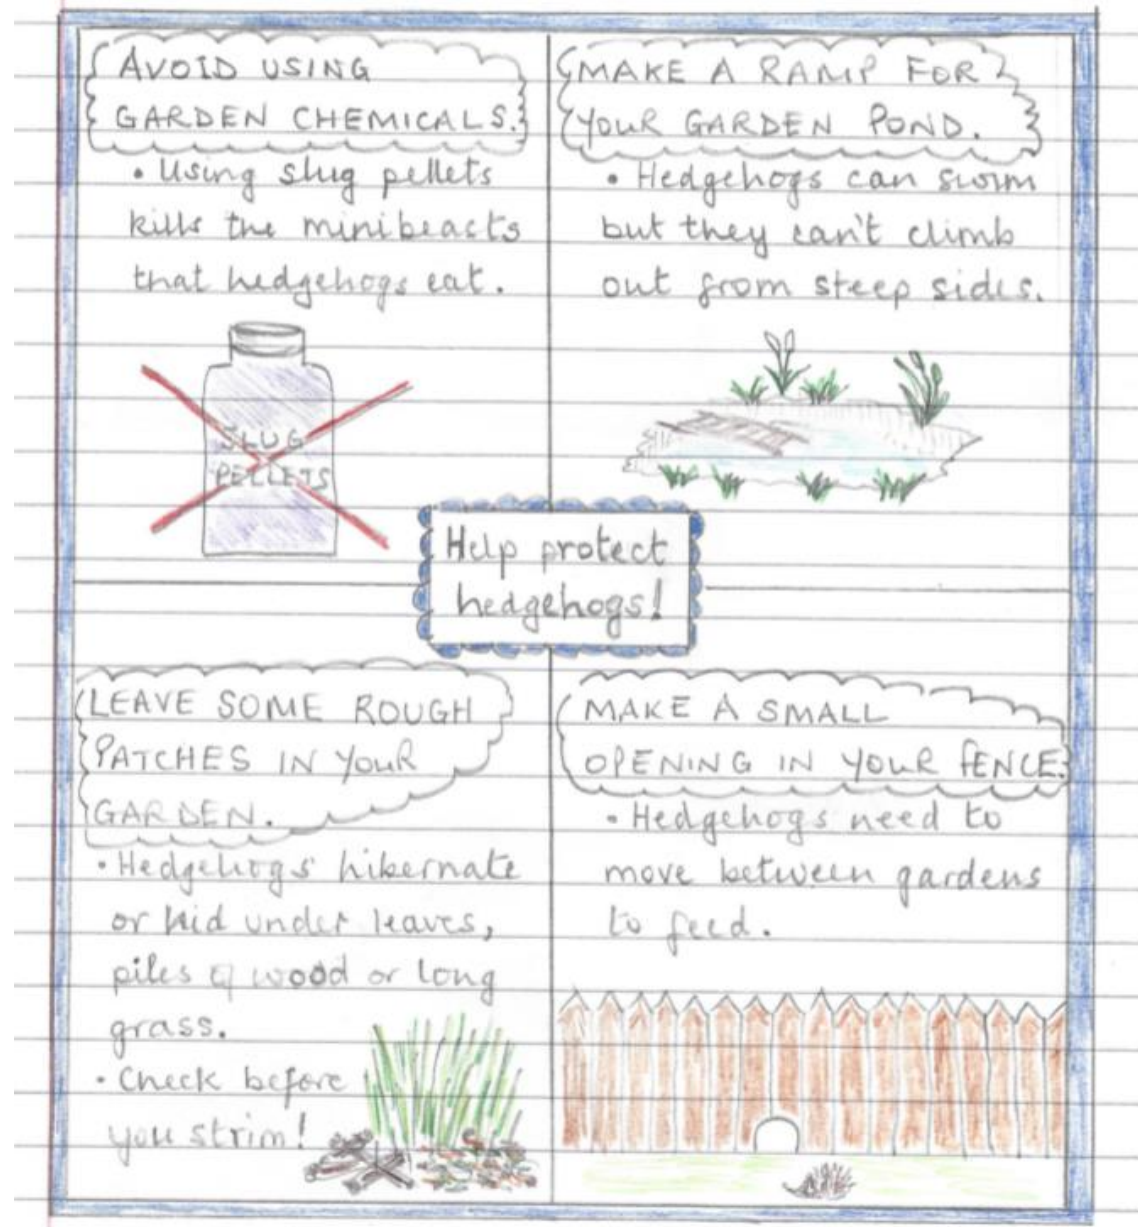 AVOID USING
GARDEN CHEMICALS.
• Using slug pellets
kills the minibeasts
that hedgehogs eat.
SLUG
PELLETS
MAKE A RAMP FOR
YOUR GARDEN POND.
• Hedgehogs can swim
but they can't climb
out from steep sides.
Help protect
hedgehogs!
LEAVE SOME ROUGH
PATCHES IN YOUR
GARDEN.
• Hedgehogs hibernate
or hid under leaves,
piles of wood or long
grass.
• Check before
you strim!
MAKE A SMALL
OPENING IN YOUR FENCE.
• Hedgehogs need to
move between gardens
to feed.